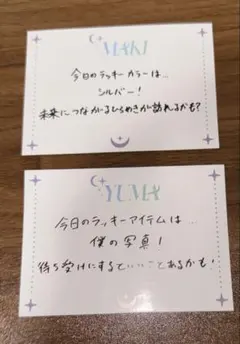 MAKI
今日のラッキーカラーは..
シルバー!
未来につながるひらめきが訪れるかも?
YUMA
今日のラッキーアイテムは..
僕の写真!
待ち受けにするといいことあるかも!